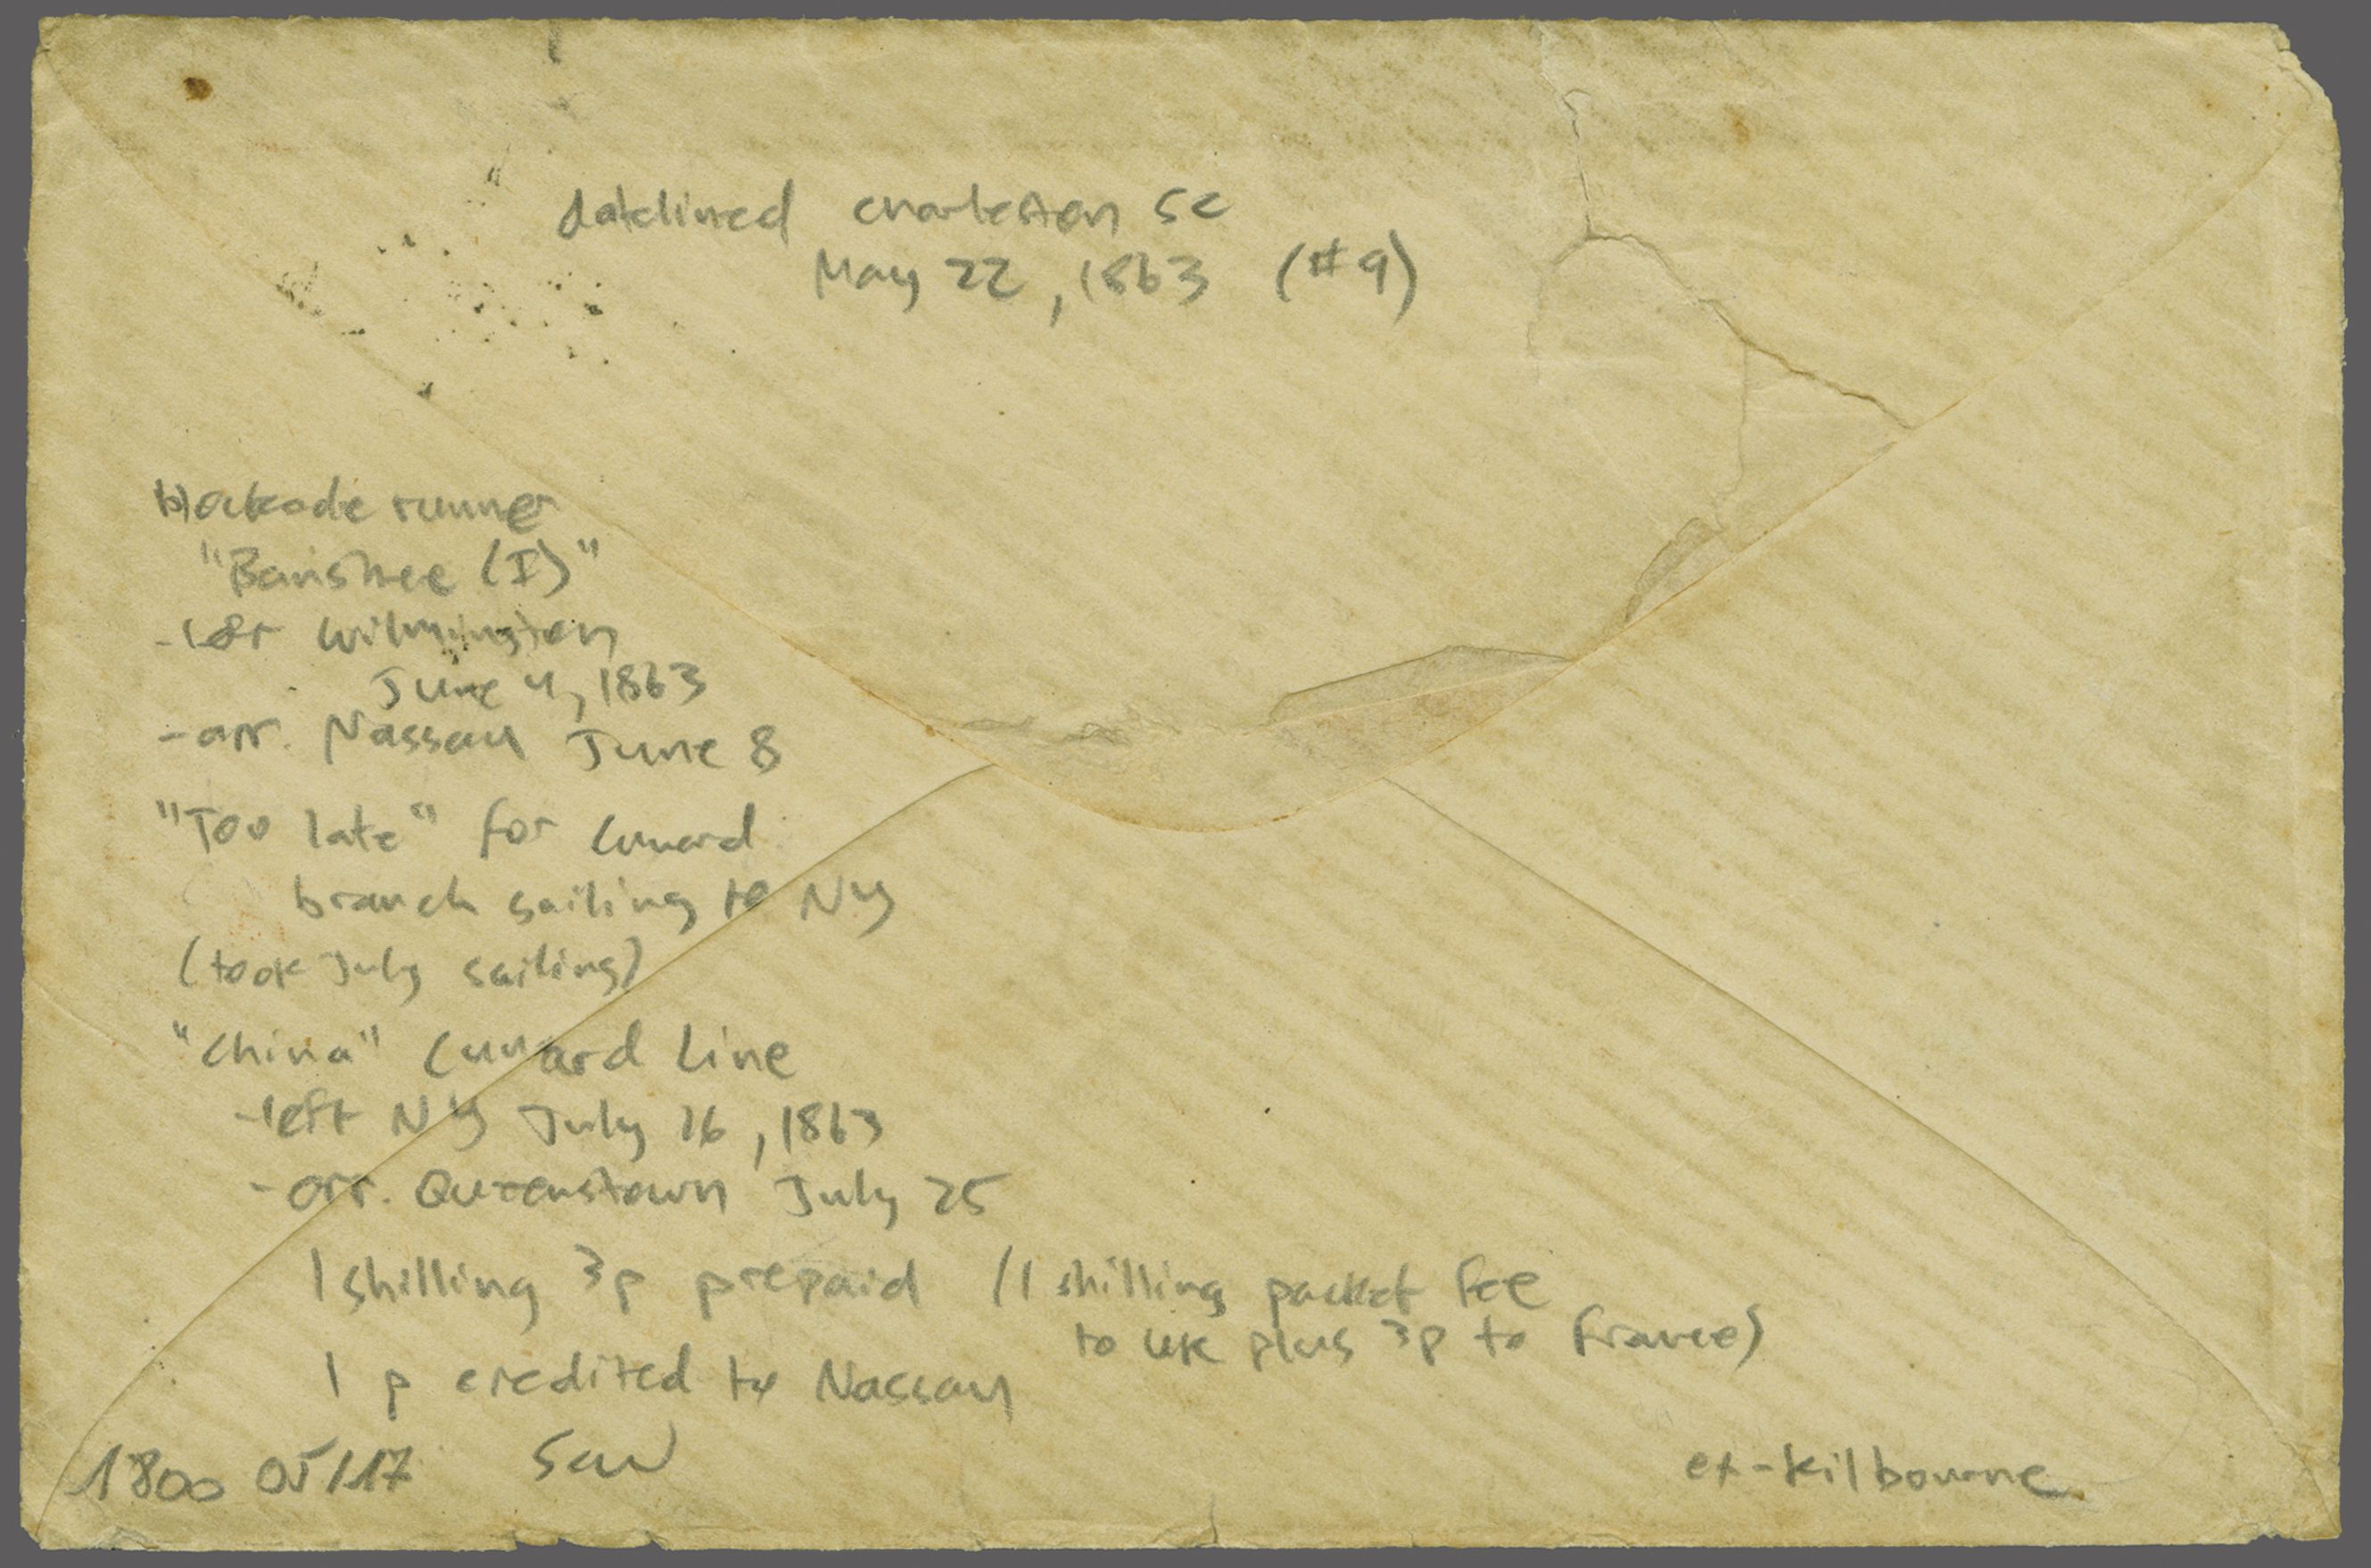 datelined Charleston SC
May 22, 1863 (#9)
blockade runner
"Banshee (I)"
- left Wilmington
June 4, 1863
- arr. Nassau June 8
"Too late" for Cunard
branch sailing to NY
(took July sailing)
"China" Cunard Line
- left NY July 16, 1863
- arr. Queenstown July 25
1 shilling 3p prepaid (1 shilling packet fee
to UK plus 3p to France)
1 p credited to Nassau
1800 05/17
ex-Kilbourne